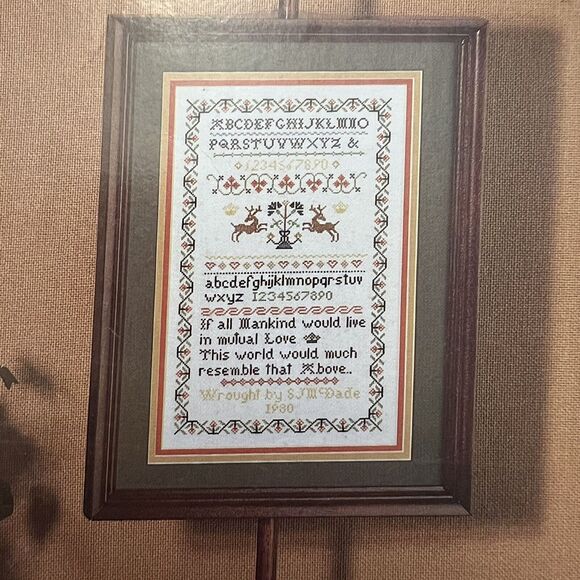 ABCDEFGHIJKLMNO
PQRSTUVWXYZ &
1234567890
abcdefghijklmnopqrstuv
wxyz 1234567890
If all Mankind would live
in mutual Love
This world would much
resemble that Above..
Wrought by SJMcDade
1980